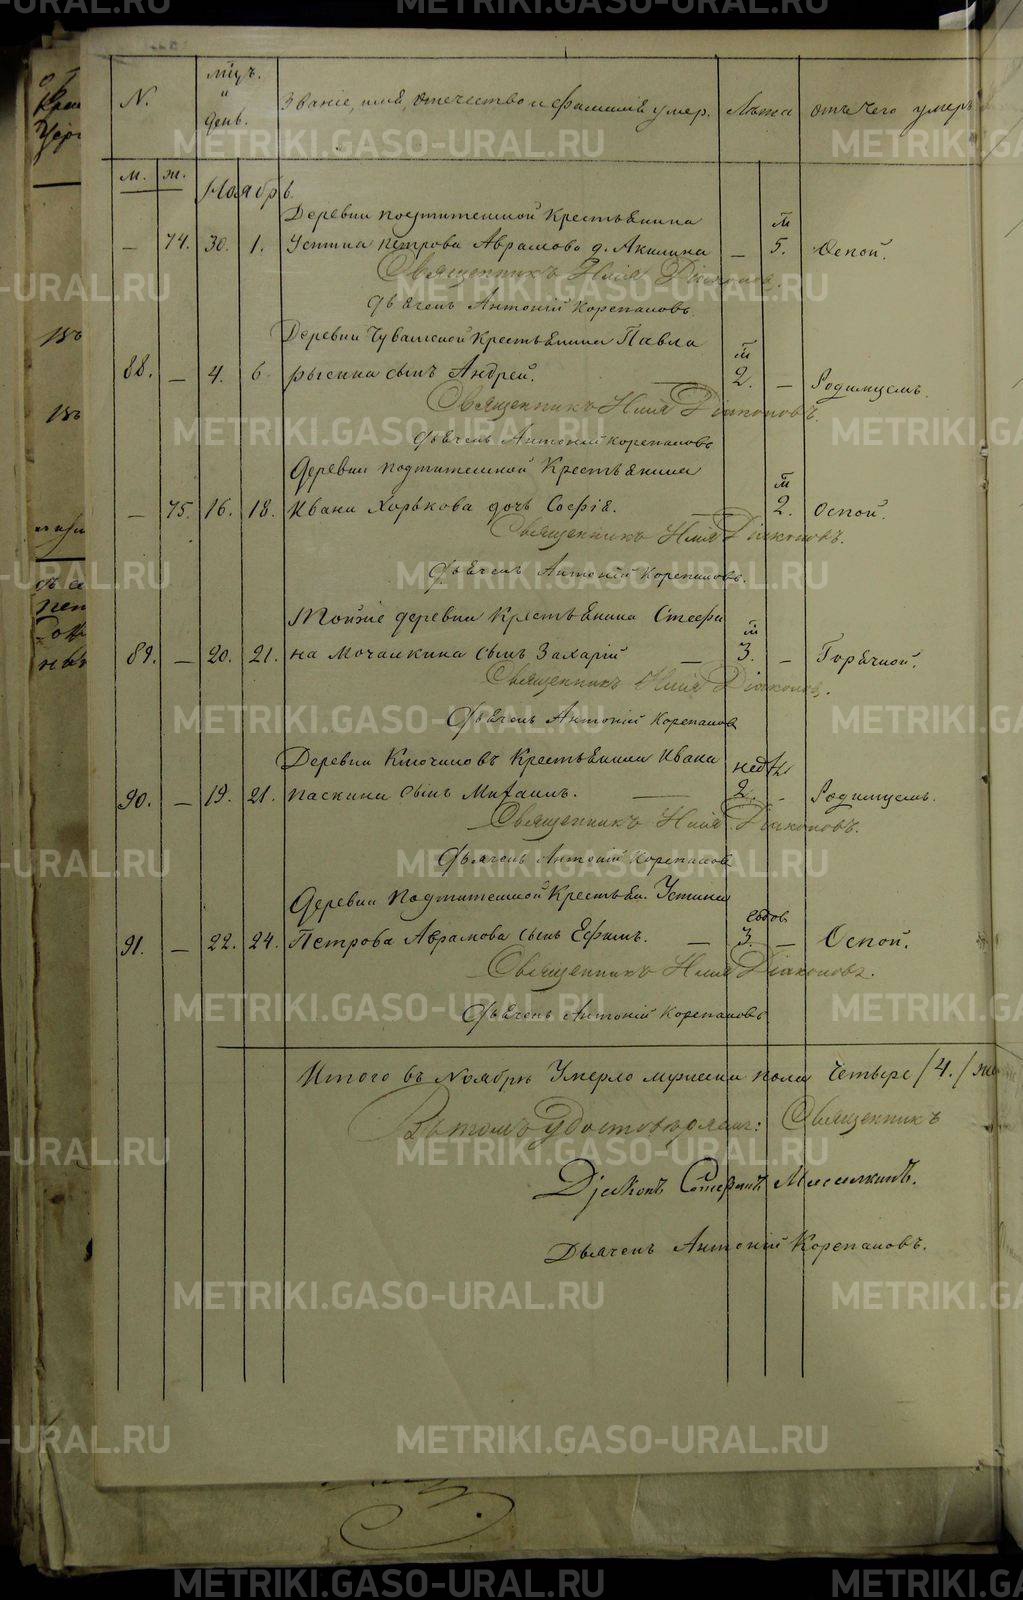 N.
мцъ.
и
день.
Званіе, имя, отечество и фамиліе умер.
Лѣта
отъ чего умер
м.
ж.
Ноябрь
Деревни подтишенной Крестьянина
м
— 74. 30. 1. Устина Петрова Аврамова д. Акилина — 5. Оспой.
Священникъ Илія Діаконовъ.
Дьячекъ Антоній Корепановъ
Деревни Чувашской Крестьянина Павла
м
88. — 4. 6 рысина сынъ Андрей. — 2. — Родимцемъ.
Священникъ Илія Діаконовъ.
Дьячекъ Антоній Корепановъ
Деревни подтишенной Крестьянина
м
— 75. 16. 18. Ивана Хорькова дочь Софія. — 2. Оспой.
Священникъ Илія Діаконовъ.
Дьячекъ Антоній Корепановъ.
Тойже деревни Крестьянина Стефа
м
89. — 20. 21. на Мочалкина сынъ Захарій — 3. — Горячкой.
Священникъ Илія Діаконовъ.
Дьячекъ Антоній Корепановъ
Деревни Ключиковъ Крестьянина Ивана
недѣл
90. — 19. 21. паскина сынъ Михаилъ. — 2. — Родимцемъ.
Священникъ Илія Діаконовъ.
Дьячекъ Антоній Корепановъ
Деревни Подтишенной Крестьян. Устина
91. — 22. 24. Петрова Аврамова сынъ Ефимъ. — 3. — Оспой.
Священникъ Илія Діаконовъ.
Дьячекъ Антоній Корепановъ
Итого въ Ноябрѣ Умерло мужеска пола Четыре /4./ же
Въ томъ удостовѣряемъ: Священникъ
Діаконъ Стефанъ
Дьячекъ Антоній Корепановъ.
METRIKI.GASO-URAL.RU